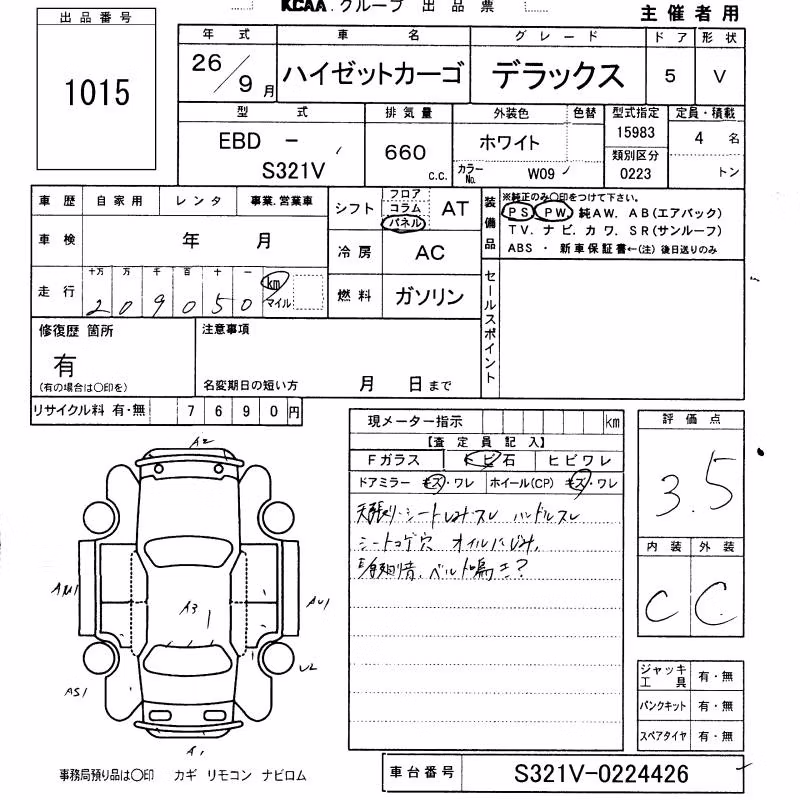 KCAA.グループ 出品票
主催者用
出品番号
1015
年式 車名 グレード ドア 形状
26/9月 ハイゼットカーゴ デラックス 5 V
型式 排気量 外装色 色替 型式指定 定員・積載
EBD - S321V
660 c.c.
ホワイト
カラーNo. W09
15983
類別区分
0223
4 名
トン
車歴 自家用 レンタ 事業.営業車
車検 年 月
走行 十万 万 千 百 十 一
209050 km マイル
シフト フロア コラム パネル AT
冷房 AC
燃料 ガソリン
装備品
※純正のみ〇印をつけて下さい。
PS PW 純AW. AB(エアバック)
TV. ナビ. カワ. SR(サンルーフ)
ABS ・ 新車保証書←(注) 後日送りのみ
セールスポイント
修復歴 箇所
有
(有の場合は〇印を)
注意事項
名変期日の短い方 月 日まで
リサイクル料 有・無 7690円
現メーター指示 km
【査定員記入】
Fガラス トビ石 ヒビワレ
ドアミラー キズ・ワレ ホイール(CP) キズ・ワレ
天張り・シートしみ・スレ ハンドルスレ
シートコゲ穴 オイルにじみ.
ベルト鳴き?
評価点
3.5
内装 外装
C C
ジャッキ工具 有・無
パンクキット 有・無
スペアタイヤ 有・無
A2
A3
AU1
U2
AS1
A1
事務局預り品は〇印 カギ リモコン ナビロム
車台番号 S321V-0224426